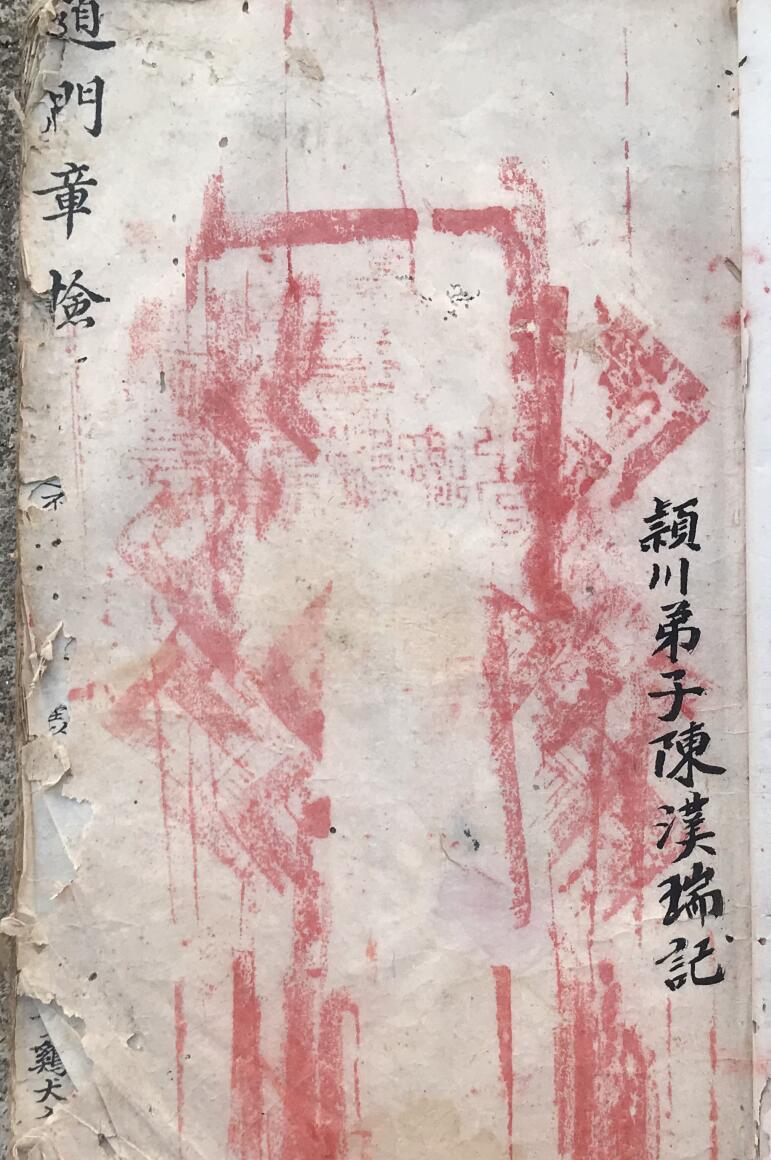 頴川弟子陳漢瑞記
道門章檢
鷄犬